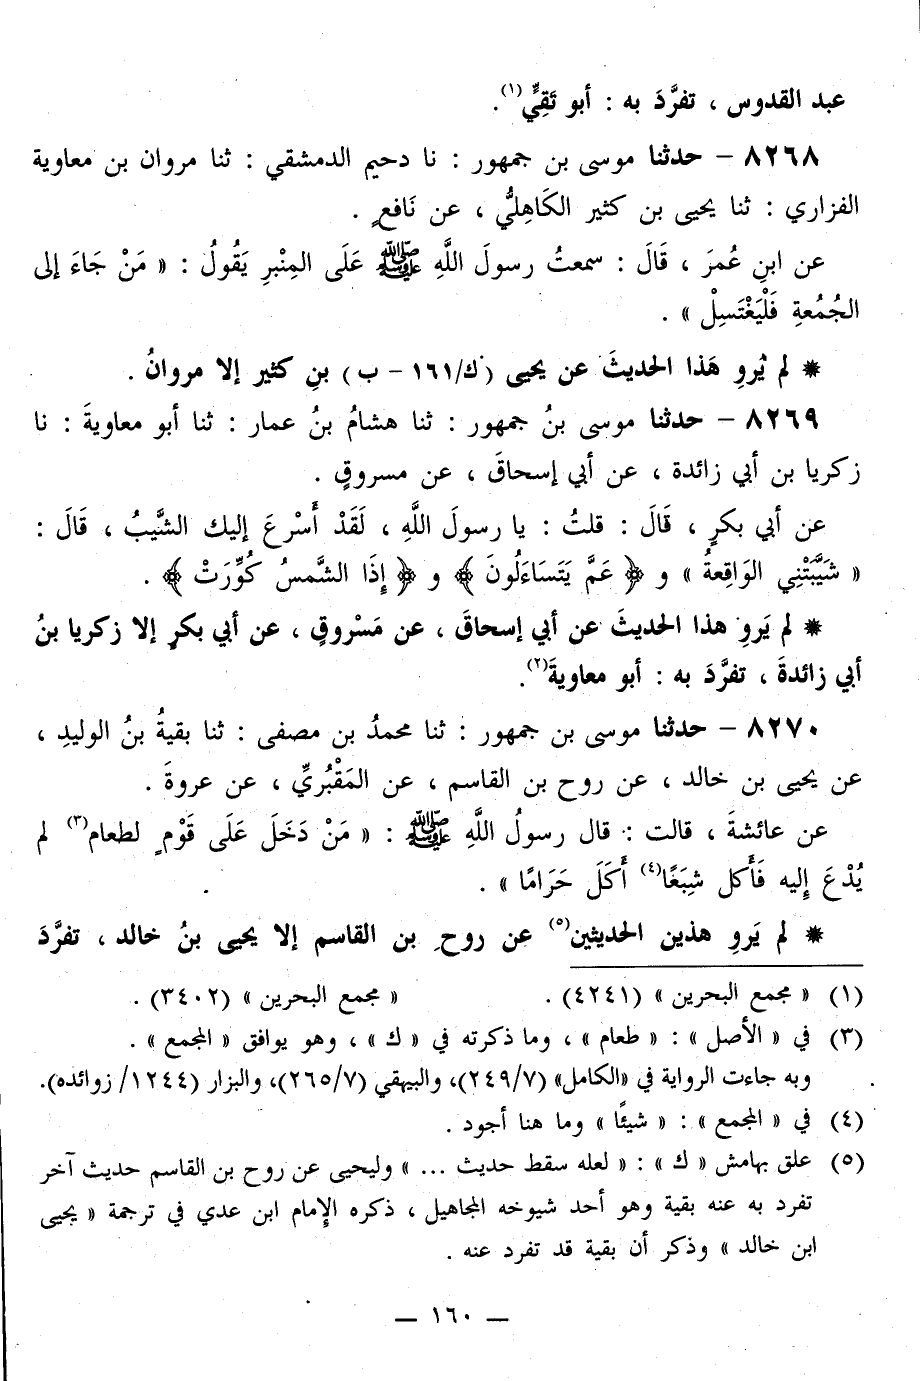 عبد القدوس ، تفرَّدَ به : أبو تَقِيٍّ(١).
٨٢٦٨ – حدثنا موسى بن جمهور : نا دحيم الدمشقي : ثنا مروان بن معاوية
الفزاري : ثنا يحيى بن كثير الكَاهِليُّ ، عن نَافعٍ .
عن ابنِ عُمرَ ، قَالَ : سمعتُ رسولَ اللَّهِ ﷺ عَلَى المِنْبرِ يَقُولُ : « مَنْ جَاءَ إلى
الجُمُعةِ فَلْيَغْتَسِلْ » .
* لم يُروِ هَذا الحديثَ عن يحيى (ك/١٦١ – ب) بنِ كثير إلا مروانُ .
٨٢٦٩ – حدثنا موسى بنُ جمهور : ثنا هشامُ بنُ عمار : ثنا أبو معاويةَ : نا
زكريا بن أبي زائدة ، عن أبي إسحاقَ ، عن مسروقٍ .
عن أبي بكرٍ ، قَالَ : قلتُ : يا رسولَ اللهِ ، لَقَدْ أَسْرعَ إليك الشَّيبُ ، قَالَ :
« شَيَّبَتْنِي الوَاقِعةُ » و ﴿ عَمَّ يَتَسَاءَلُونَ ﴾ و ﴿ إِذَا الشَّمسُ كُوِّرَتْ ﴾ .
* لم يَروِ هذا الحديثَ عن أبي إسحاقَ ، عن مَسْروقٍ ، عن أبي بكرٍ إلا زكريا بنُ
أبي زائدةَ ، تفرَّدَ به : أبو معاويةَ(٢).
٨٢٧٠ – حدثنا موسى بن جمهور : ثنا محمدُ بن مصفى : ثنا بقيةُ بنُ الوليدِ ،
عن يحيى بن خالد ، عن روح بن القاسم ، عن المَقْبُريِّ ، عن عروةَ .
عن عائشةَ ، قالت : قال رسولُ اللَّهِ ﷺ : « مَنْ دَخَلَ عَلَى قَوْمٍ لطعام(٣) لم
يُدْعَ إِليه فَأَكل شِبَعًا(٤) أَكَلَ حَرَامًا » .
* لم يَروِ هذين الحديثين(٥) عن روحِ بن القاسم إلا يحيى بنُ خالد ، تفرَّدَ
(١) « مجمع البحرين » (٤٢٤١) . « مجمع البحرين » (٣٤٠٢) .
(٣) في « الأصل » : « طعام » ، وما ذكرته في « ك » ، وهو يوافق « المجمع » .
وبه جاءت الرواية في «الكامل» (٢٤٩/٧)، والبيهقي (٢٦٥/٧)، والبزار (١٢٤٤/ زوائده).
(٤) في « المجمع » : « شيئًا » وما هنا أجود .
(٥) علق بهامش « ك » : « لعله سقط حديث ... » وليحيى عن روح بن القاسم حديث آخر
تفرد به عنه بقية وهو أحد شيوخه المجاهيل ، ذكره الإمام ابن عدي في ترجمة « يحيى
ابن خالد » وذكر أن بقية قد تفرد عنه .
— ١٦٠ —